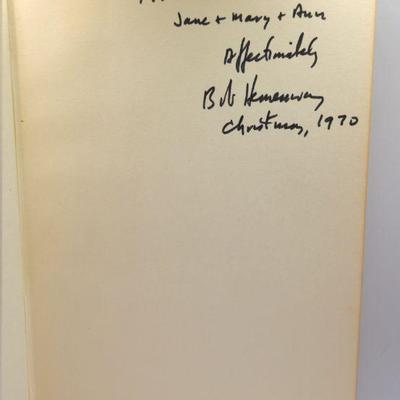 Jane + Mary + Ann
Affectionately
Bob Hemenway
Christmas, 1970